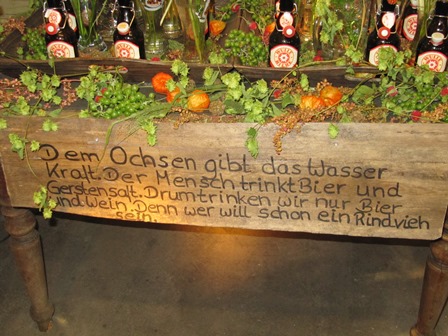 Dem Ochsen gibt das Wasser
Kraft. Der Mensch trinkt Bier und
Gerstensaft. Drum trinken wir nur Bier
und Wein. Denn wer will schon ein Rindvieh
sein.